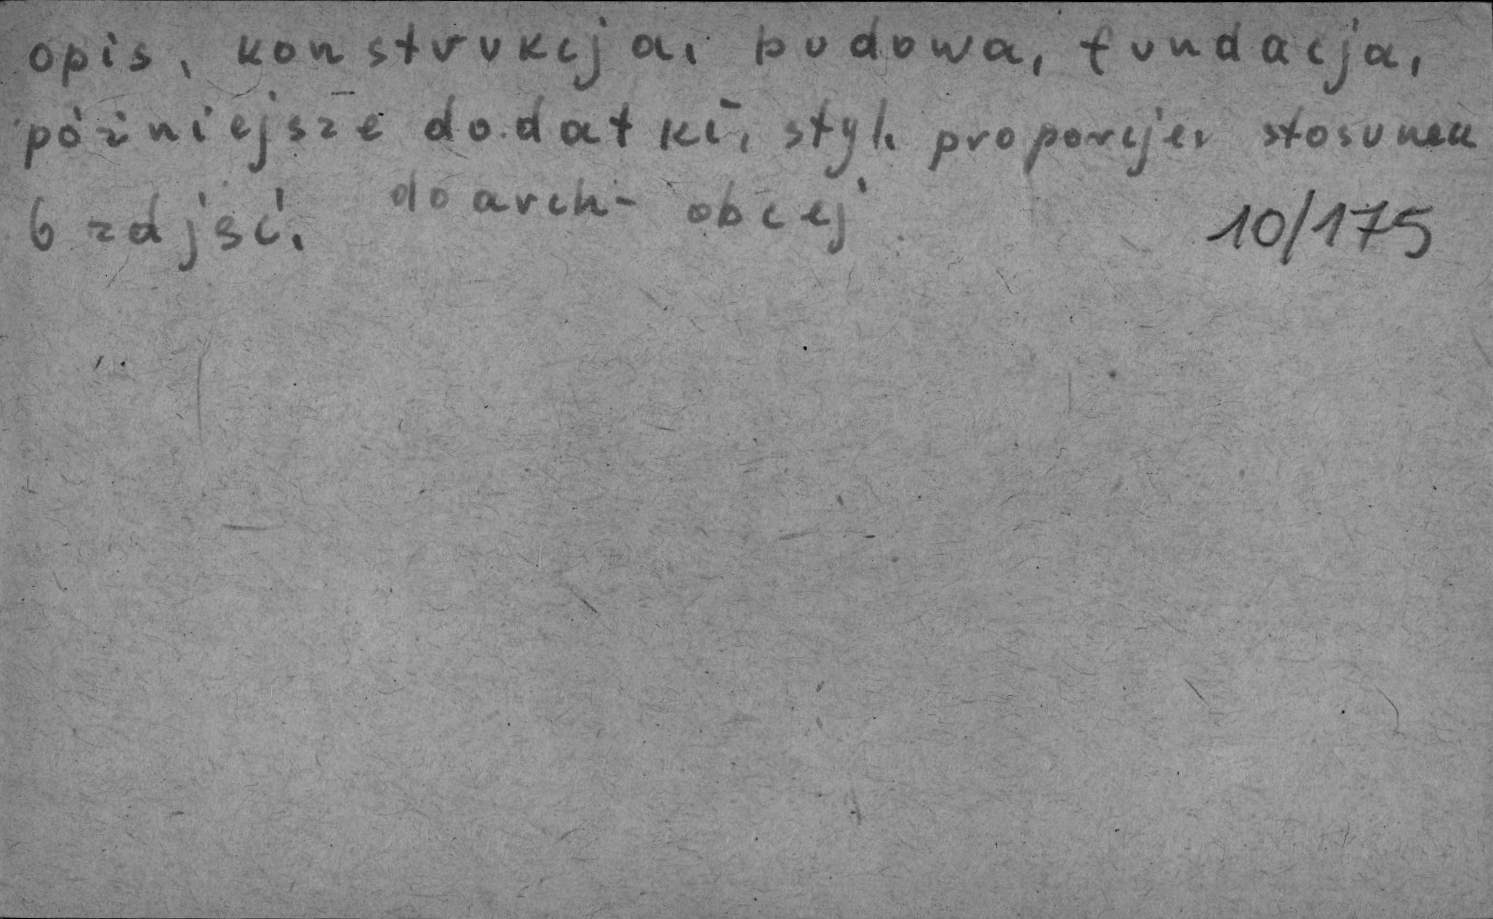 opis, konstrukcja, budowa, fundacja,
późniejsze dodatki, styl, proporcje, stosunek
do arch. obcej
6 zdjęć.
10/175